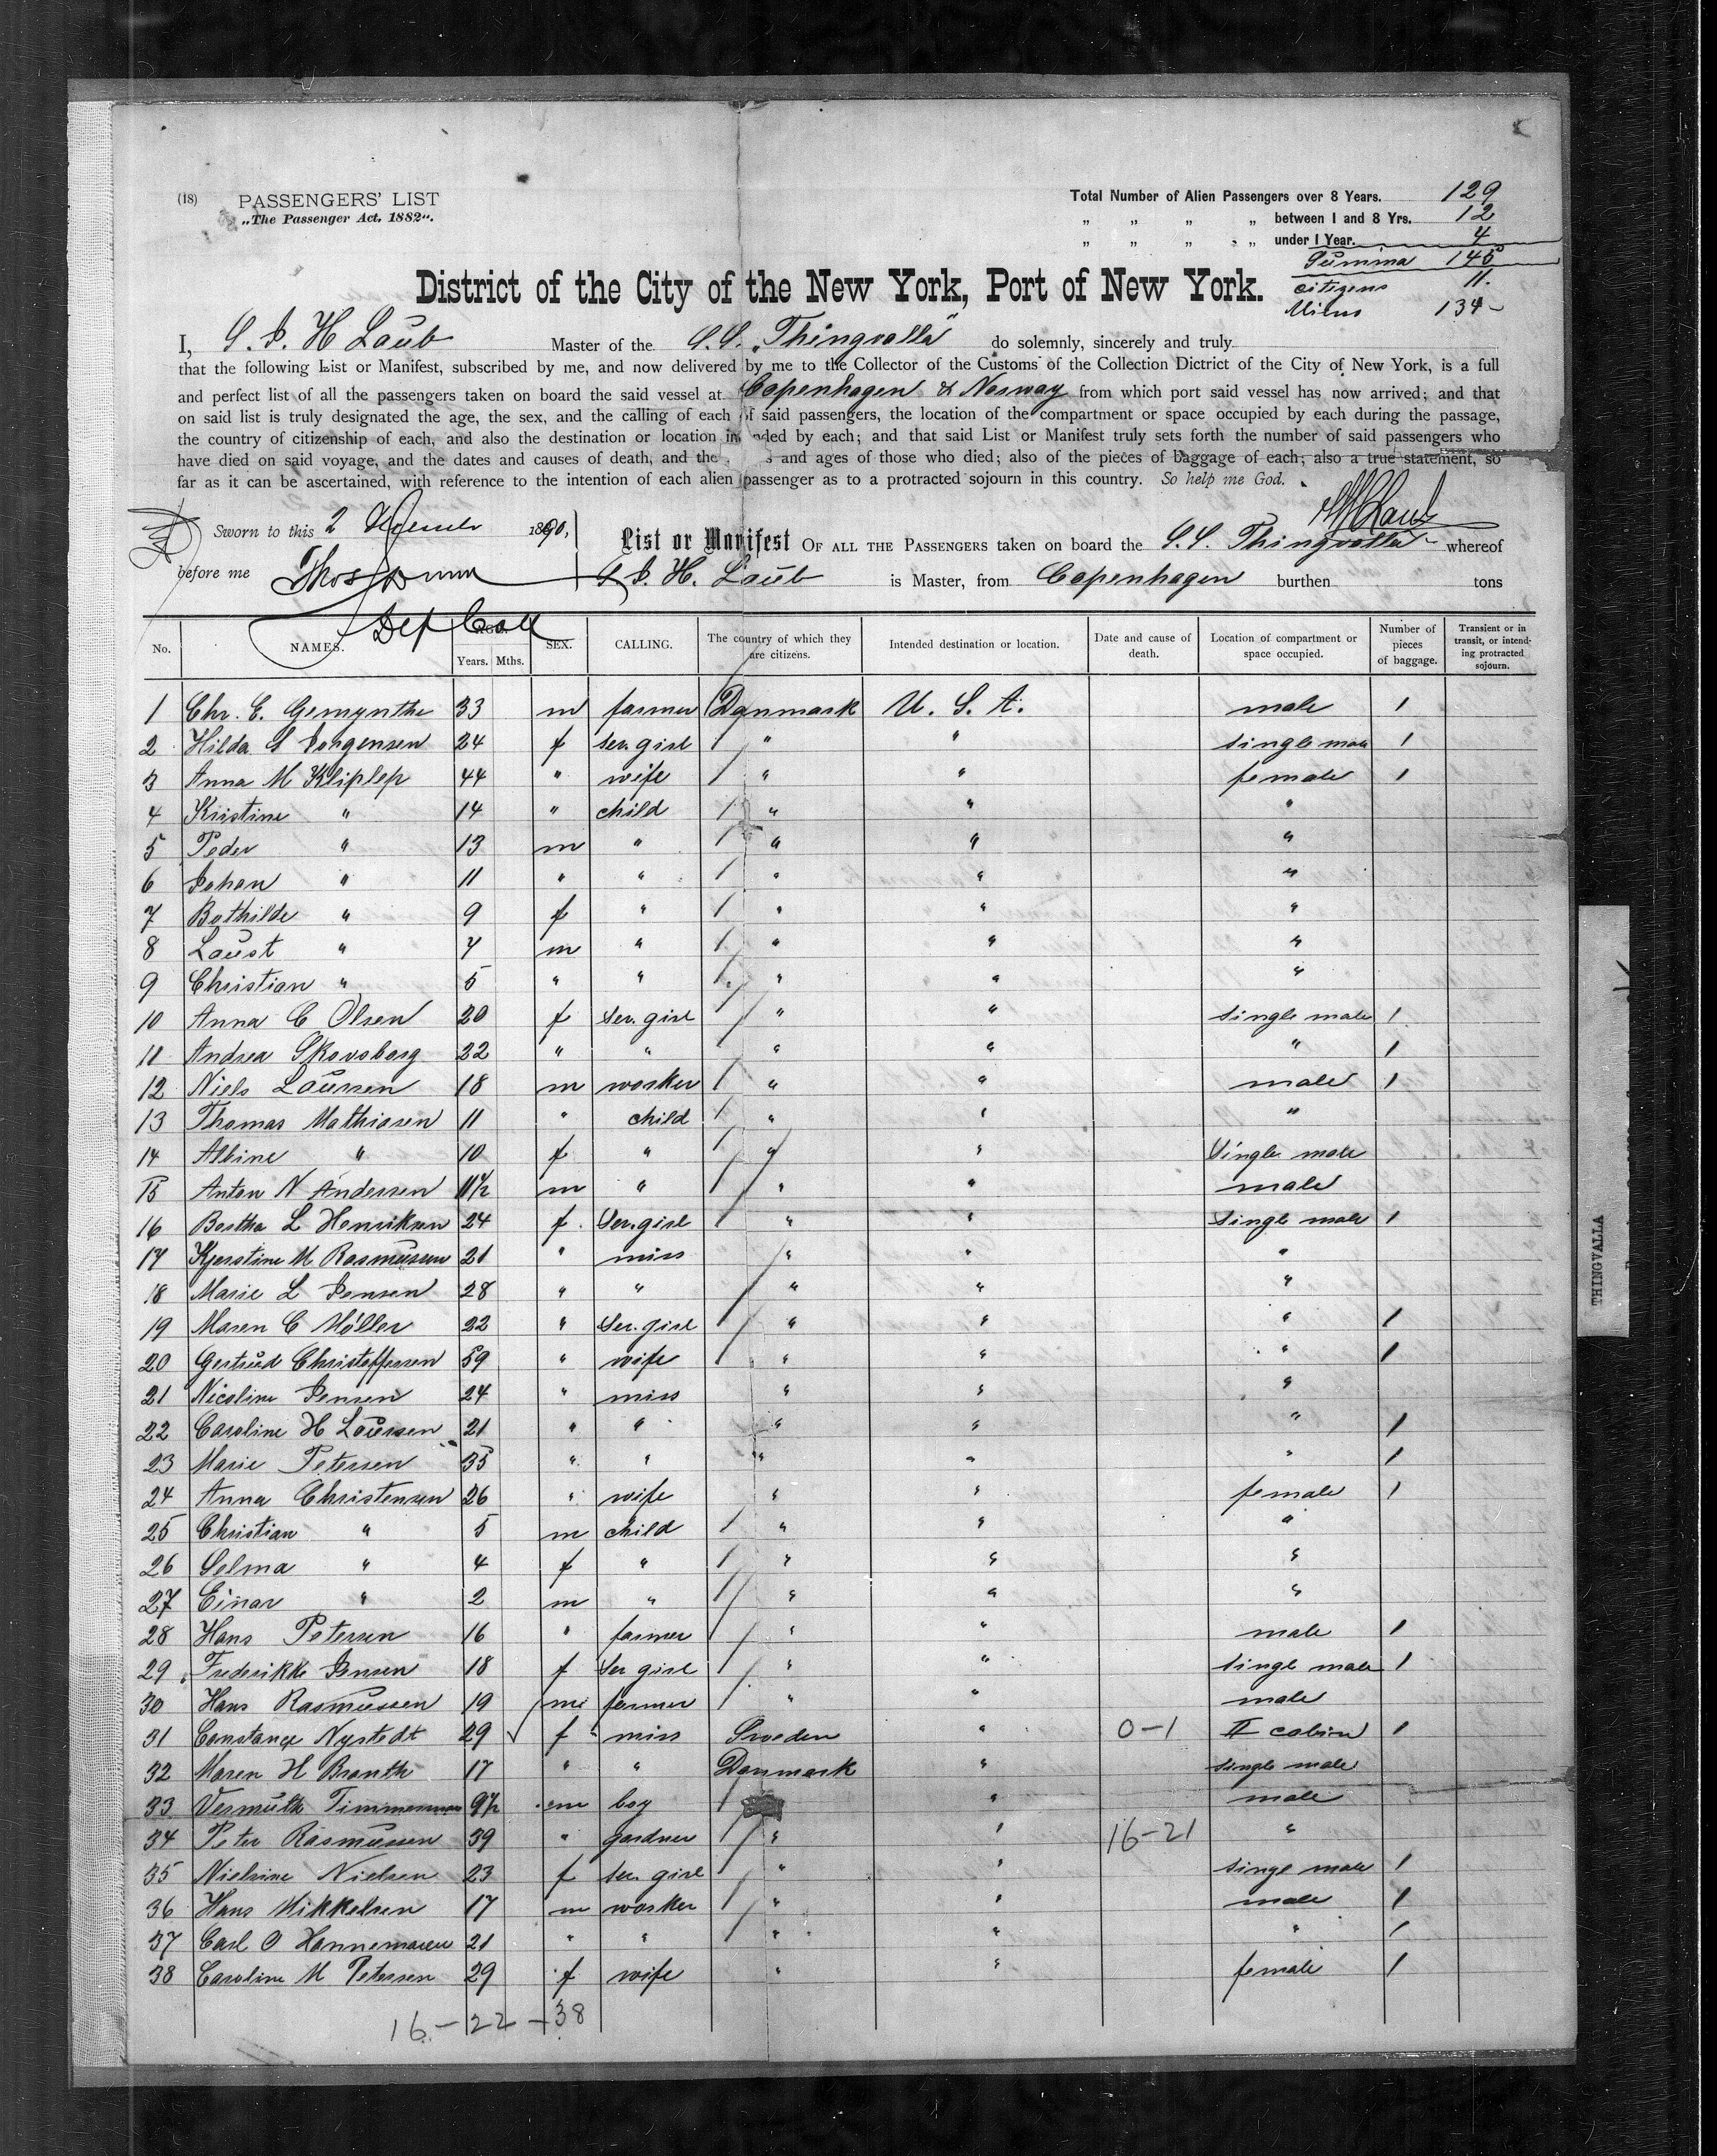 (18) PASSENGERS' LIST
„The Passenger Act, 1882".
Total Number of Alien Passengers over 8 Years. 129
„ „ „ „ between 1 and 8 Yrs. 12
„ „ „ „ under 1 Year. 4
Summa 145
citizens 11.
Aliens 134
District of the City of the New York, Port of New York.
I, S. J. H Laub Master of the S.S. „Thingvalla" do solemnly, sincerely and truly
that the following List or Manifest, subscribed by me, and now delivered by me to the Collector of the Customs of the Collection Dictrict of the City of New York, is a full
and perfect list of all the passengers taken on board the said vessel at Copenhagen & Norway from which port said vessel has now arrived; and that
on said list is truly designated the age, the sex, and the calling of each of said passengers, the location of the compartment or space occupied by each during the passage,
the country of citizenship of each, and also the destination or location in nded by each; and that said List or Manifest truly sets forth the number of said passengers who
have died on said voyage, and the dates and causes of death, and the s and ages of those who died; also of the pieces of baggage of each; also a true statement, so
far as it can be ascertained, with reference to the intention of each alien passenger as to a protracted sojourn in this country. So help me God.
Sworn to this 2 December 1890,
before me
Dep Coll
List or Manifest OF ALL THE PASSENGERS taken on board the S.S. Thingvalla whereof
S. J. H. Laub is Master, from Copenhagen burthen tons
No. NAMES. AGE. Years. Mths. SEX. CALLING. The country of which they are citizens. Intended destination or location. Date and cause of death. Location of compartment or space occupied. Number of pieces of baggage. Transient or in transit, or intending protracted sojourn.
1 Chr. C. Gemynthe 33 m farmer Danmark U. S. A. male 1
2 Hilda S Jorgensen 24 f ser. girl " " single male 1
3 Anna M Kliplep 44 " wife " " female 1
4 Kristine " 14 " child " " "
5 Peder " 13 m " " " "
6 Johan " 11 " " " " "
7 Bothilde " 9 f " " " "
8 Laust " 7 m " " " "
9 Christian " 5 " " " " "
10 Anna C Olsen 20 f ser. girl " " single male 1
11 Andrea Skovsborg 22 " " " " " 1
12 Niels Laursen 18 m worker " " male 1
13 Thomas Mathiasen 11 " child " " "
14 Albine " 10 f " " " Single male
15 Anton N Andersen 11½ m " " " male
16 Bertha L Henriksen 24 f. Ser. girl " " Single male 1
17 Kjerstine M Rasmussen 21 " miss " " "
18 Marie L Jensen 28 " " " " "
19 Maren C Møller 22 " Ser. girl " " " 1
20 Gertrud Christoffersen 59 " wife " " " 1
21 Nicoline Jensen 24 " miss " " "
22 Caroline H Laursen 21 " " " " " 1
23 Marie Petersen 35 " " " " " 1
24 Anna Christensen 26 " wife " " female 1
25 Christian " 5 m child " " "
26 Selma " 4 f " " " "
27 Einar " 2 m " " " "
28 Hans Petersen 16 " farmer " " male 1
29 Frederikke Jensen 18 f Ser girl " " singl male 1
30 Hans Rasmussen 19 m farmer " " male
31 Constance Nystedt 29 f miss Sweden " 0-1 II cabin 1
32 Maren H Branth 17 " " Danmark " single male
33 Vermuth Timmerman 9½ m boy " male
34 Peter Rasmussen 39 " gardner " " 16-21 "
35 Nielsine Nielsen 23 f ser. girl " " singl male 1
36 Hans Mikkelsen 17 m worker " " male 1
37 Carl O Hannemann 21 " " " " " 1
38 Caroline M Petersen 29 f wife " " female 1
16-22-38
THINGVALLA